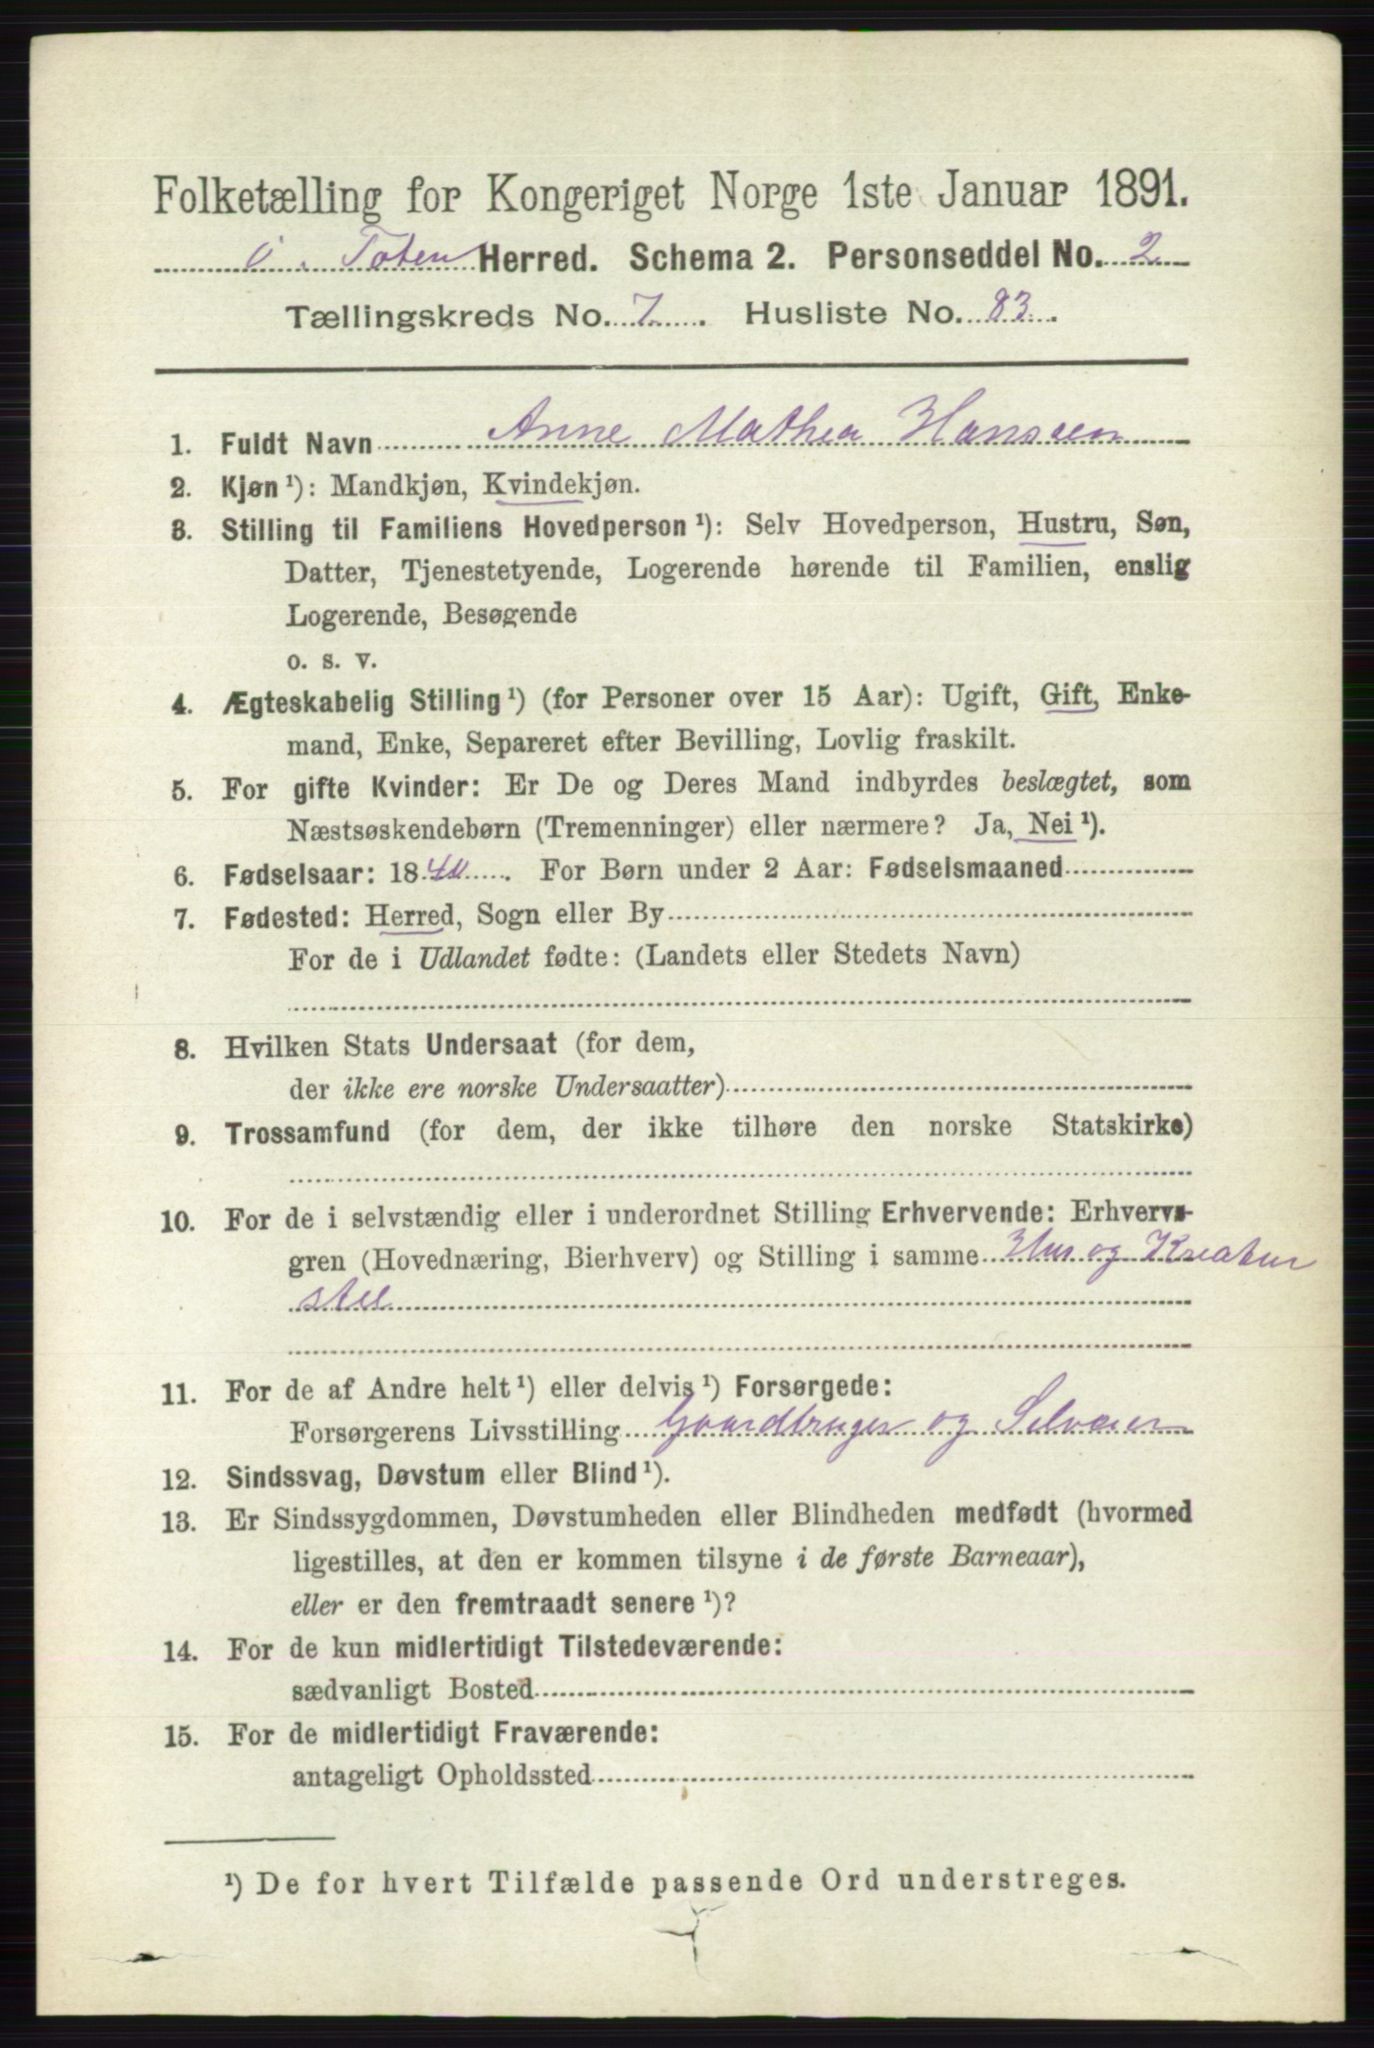 Folketælling for Kongeriget Norge 1ste Januar 1891.
Ø. Toten Herred. Schema 2. Personseddel No. 2
Tællingskreds No. 7. Husliste No. 83.
1. Fuldt Navn Anne Mathea Hanssen
2. Kjøn ¹): Mandkjøn, Kvindekjøn.
3. Stilling til Familiens Hovedperson ¹): Selv Hovedperson, Hustru, Søn,
Datter, Tjenestetyende, Logerende hørende til Familien, enslig
Logerende, Besøgende
o. s. v.
4. Ægteskabelig Stilling ¹) (for Personer over 15 Aar): Ugift, Gift, Enke-
mand, Enke, Separeret efter Bevilling, Lovlig fraskilt.
5. For gifte Kvinder: Er De og Deres Mand indbyrdes beslægtet, som
Næstsøskendebørn (Tremenninger) eller nærmere? Ja, Nei ¹).
6. Fødselsaar: 1840. For Børn under 2 Aar: Fødselsmaaned
7. Fødested: Herred, Sogn eller By
For de i Udlandet fødte: (Landets eller Stedets Navn)
8. Hvilken Stats Undersaat (for dem,
der ikke ere norske Undersaatter)
9. Trossamfund (for dem, der ikke tilhøre den norske Statskirke)
10. For de i selvstændig eller i underordnet Stilling Erhvervende: Erhvervs-
gren (Hovednæring, Bierhverv) og Stilling i samme Hus og Kreatur
stel
11. For de af Andre helt ¹) eller delvis ¹) Forsørgede:
Forsørgerens Livsstilling Gaardbruger og Selveier
12. Sindssvag, Døvstum eller Blind ¹).
13. Er Sindssygdommen, Døvstumheden eller Blindheden medfødt (hvormed
ligestilles, at den er kommen tilsyne i de første Barneaar),
eller er den fremtraadt senere ¹)?
14. For de kun midlertidigt Tilstedeværende:
sædvanligt Bosted
15. For de midlertidigt Fraværende:
antageligt Opholdssted
¹) De for hvert Tilfælde passende Ord understreges.